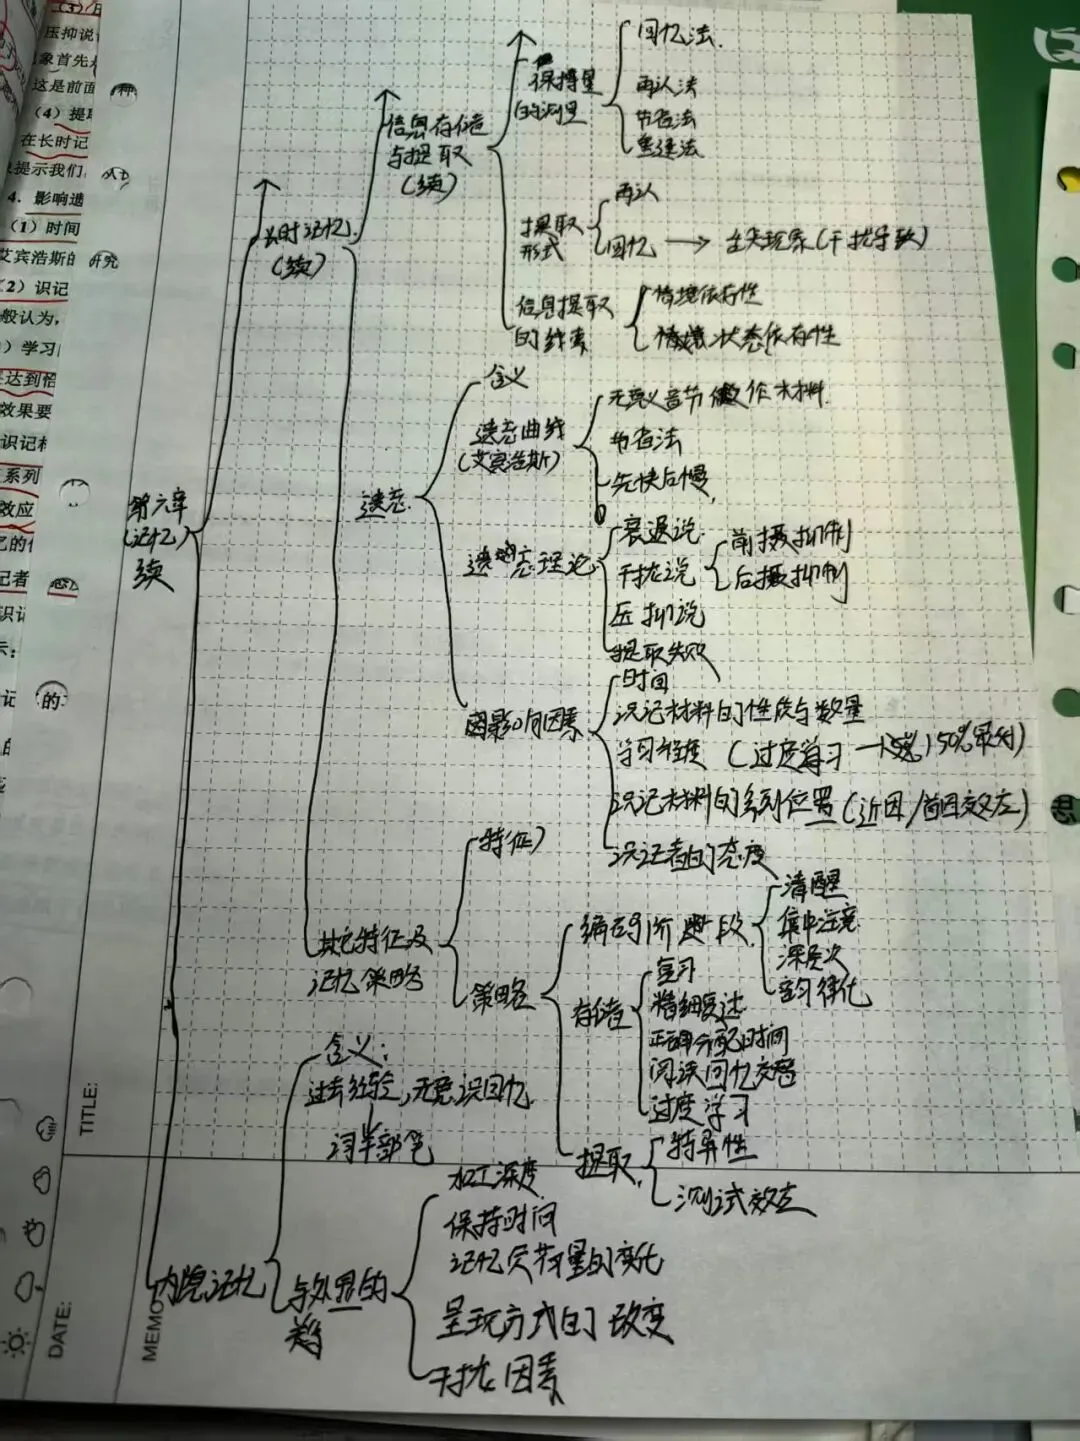 压抑说
象首先
这是前面
(4) 提
在长时记
提示我们
4. 影响遗
(1) 时间
艾宾浩斯的研究
(2) 识记
般认为,
学习
达到
效果要
识记
系列
效应
记者
识记
的
第六章
(记忆)
续
长时记忆
(续)
信息存储
与提取
(续)
保持量
的测量
回忆法
再认法
节省法
重建法
提取
形式
再认
回忆 → 舌尖现象(干扰导致)
信息提取
的线索
情境依存性
状态依存性
遗忘
含义
遗忘曲线
(艾宾浩斯)
无意义音节做作材料
节省法
先快后慢
遗忘理论
衰退说
干扰说
前摄抑制
后摄抑制
压抑说
提取失败
影响因素
时间
识记材料的性质与数量
学习程度(过度学习 150%最好)
识记材料的系列位置(近因/首因效应)
识记者的态度
其它特征及
记忆策略
特征
策略
编码阶段
清醒
集中注意
深层次
韵律化
存储
复习
精细复述
正确分配时间
阅读回忆交替
过度学习
提取
特异性
测试效应
内隐记忆
含义:
过去经验,无意识回忆
词干部笔
与外显的
差
加工深度
保持时间
记忆负荷量的变化
呈现方式的改变
干扰因素
TITLE:
DATE:
MEMO